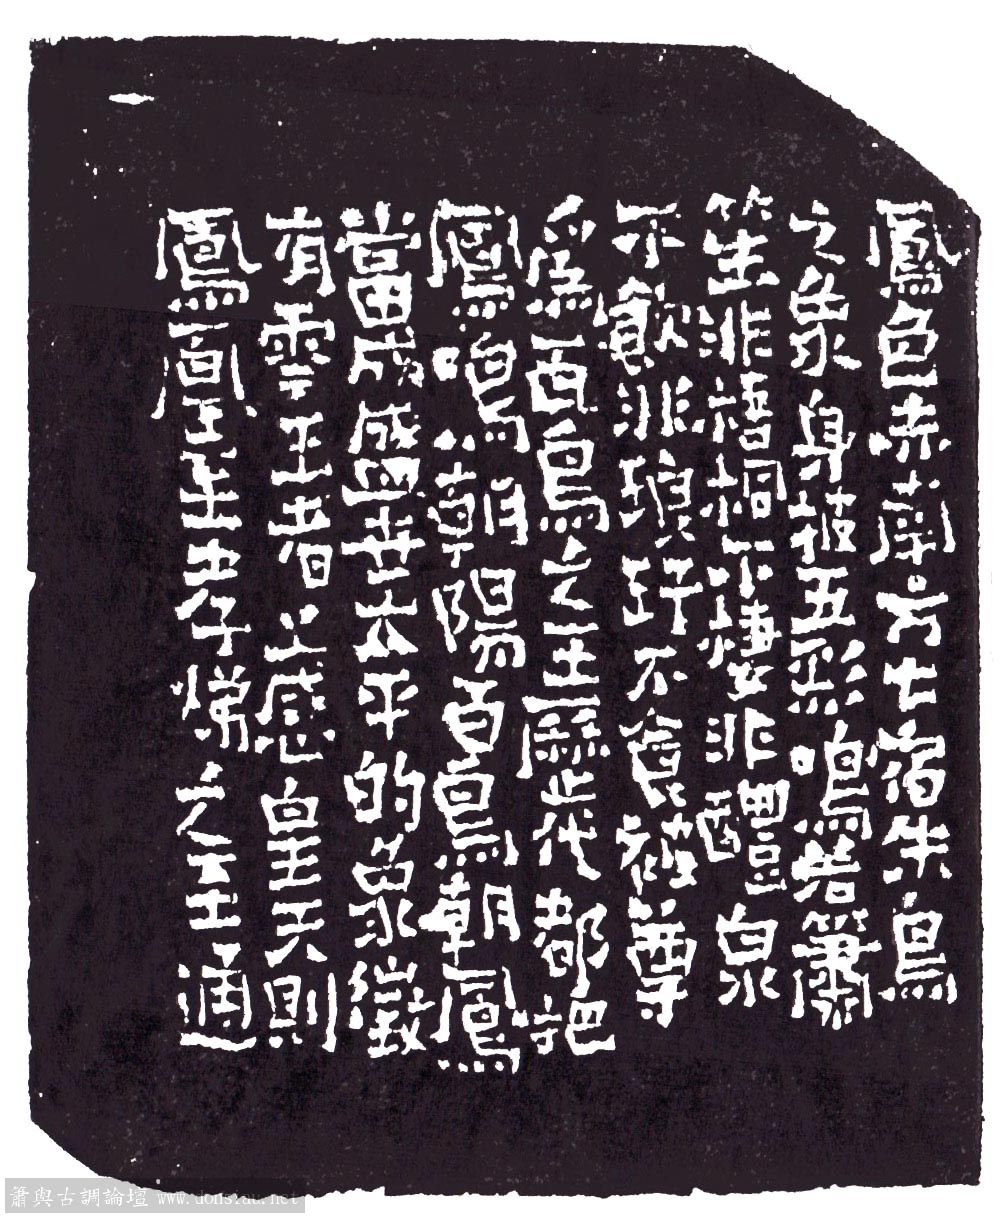 鳳色赤南方七宿朱鳥
之象身披五彩鳴若簫
笙非梧桐不棲非醴泉
不飲非琅玕不食被尊
為百鳥之王歷代都把
鳳鳴朝陽百鳥朝鳳
當成盛世太平的象徵
有雲王者上感皇天則
鳳凰至孝悌之至通
簫與古調論壇 www.donsiau.net